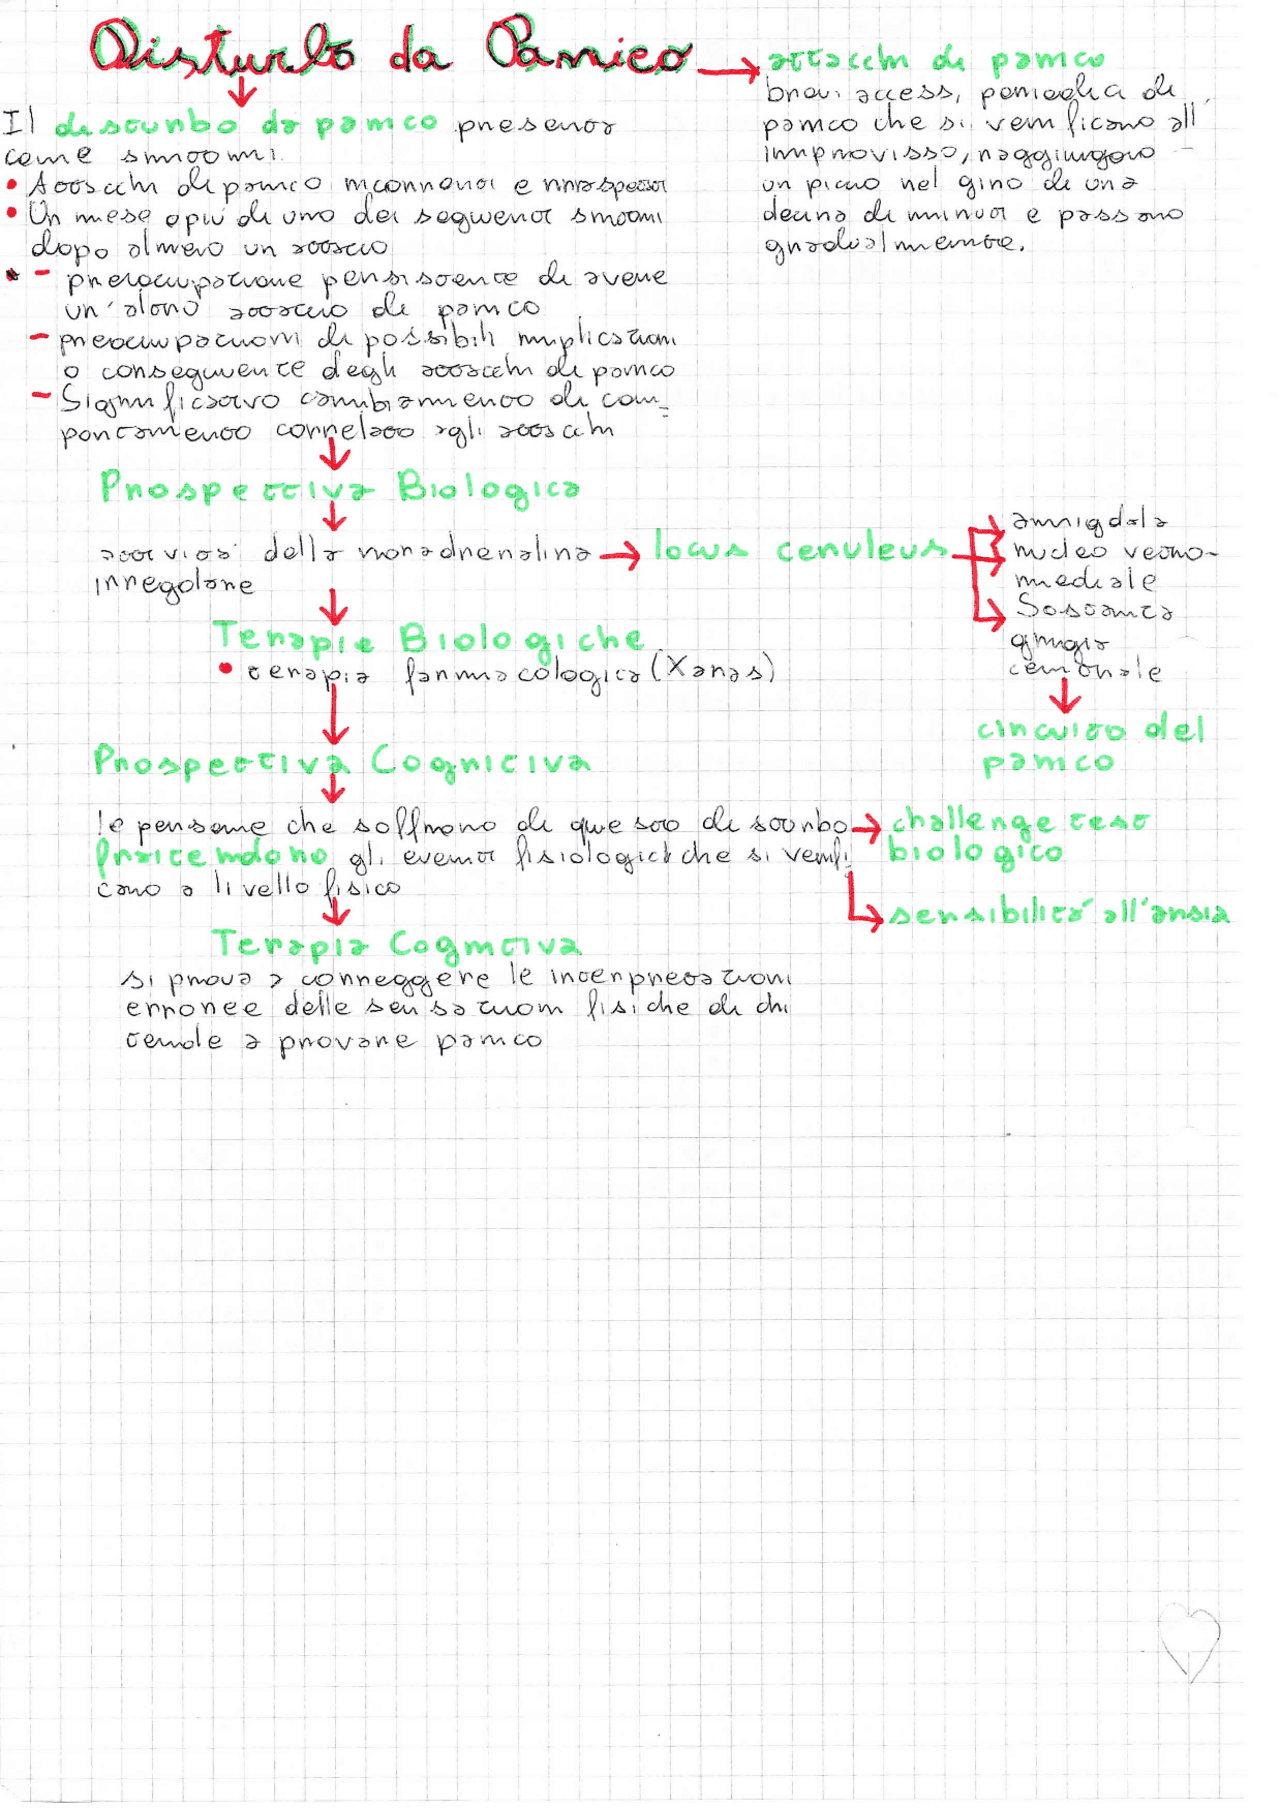 Disturbo da Panico
attacchi di panico
brevi accessi periodici di
panico che si verificano all'
improvviso, raggiungono
un picco nel giro di una
decina di minuti e passano
gradualmente.
Il disturbo da panico presenta
come sintomi:
Attacchi di panico ricorrenti e inaspettati
Un mese o più di uno dei seguenti sintomi
dopo almeno un attacco
- preoccupazione persistente di avere
un'altro attacco di panico
- preoccupazioni di possibili implicazioni
o conseguenze degli attacchi di panico
- Significativo cambiamento di com-
portamento correlato agli attacchi
Prospettiva Biologica
attività della noradrenalina
irregolare
locus ceruleus
amigdala
nucleo ventro-
mediale
Sostanza
grigia
centrale
circuito del
panico
Terapie Biologiche
terapia farmacologica (Xanas)
Prospettiva Cognitiva
le persone che soffrono di questo disturbo
fraitendono gli eventi fisiologici che si verifi
cano a livello fisico
challenge test
biologico
sensibilità all'ansia
Terapia Cognitiva
si prova a correggere le interpretazioni
erronee delle sensazioni fisiche di chi
tende a provare panico